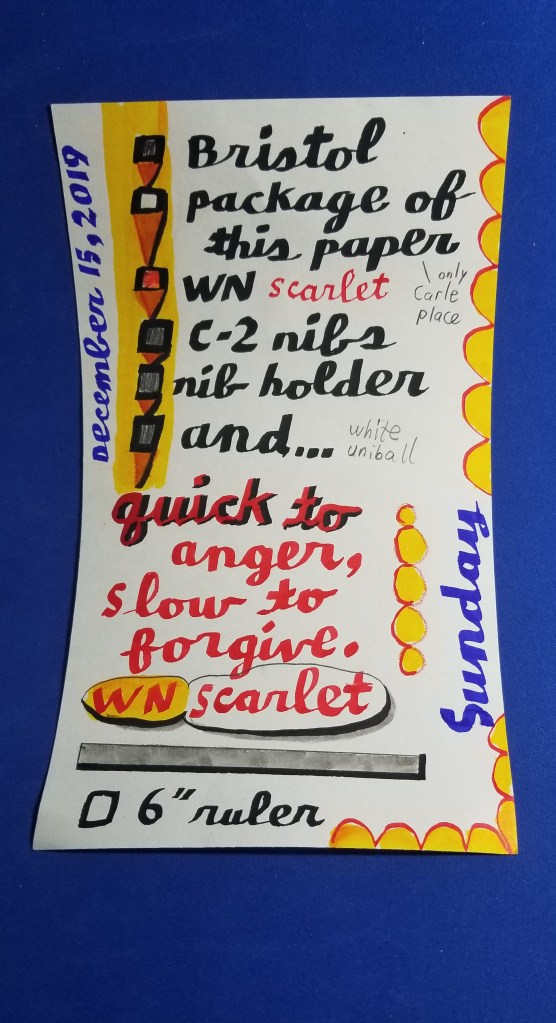 December 15, 2019
Bristol
package of
this paper
\ only
Carle
place
WN scarlet
C-2 nibs
nib holder
and...
white
uniball
quick to
anger,
slow to
forgive.
Sunday
WN scarlet
6" ruler